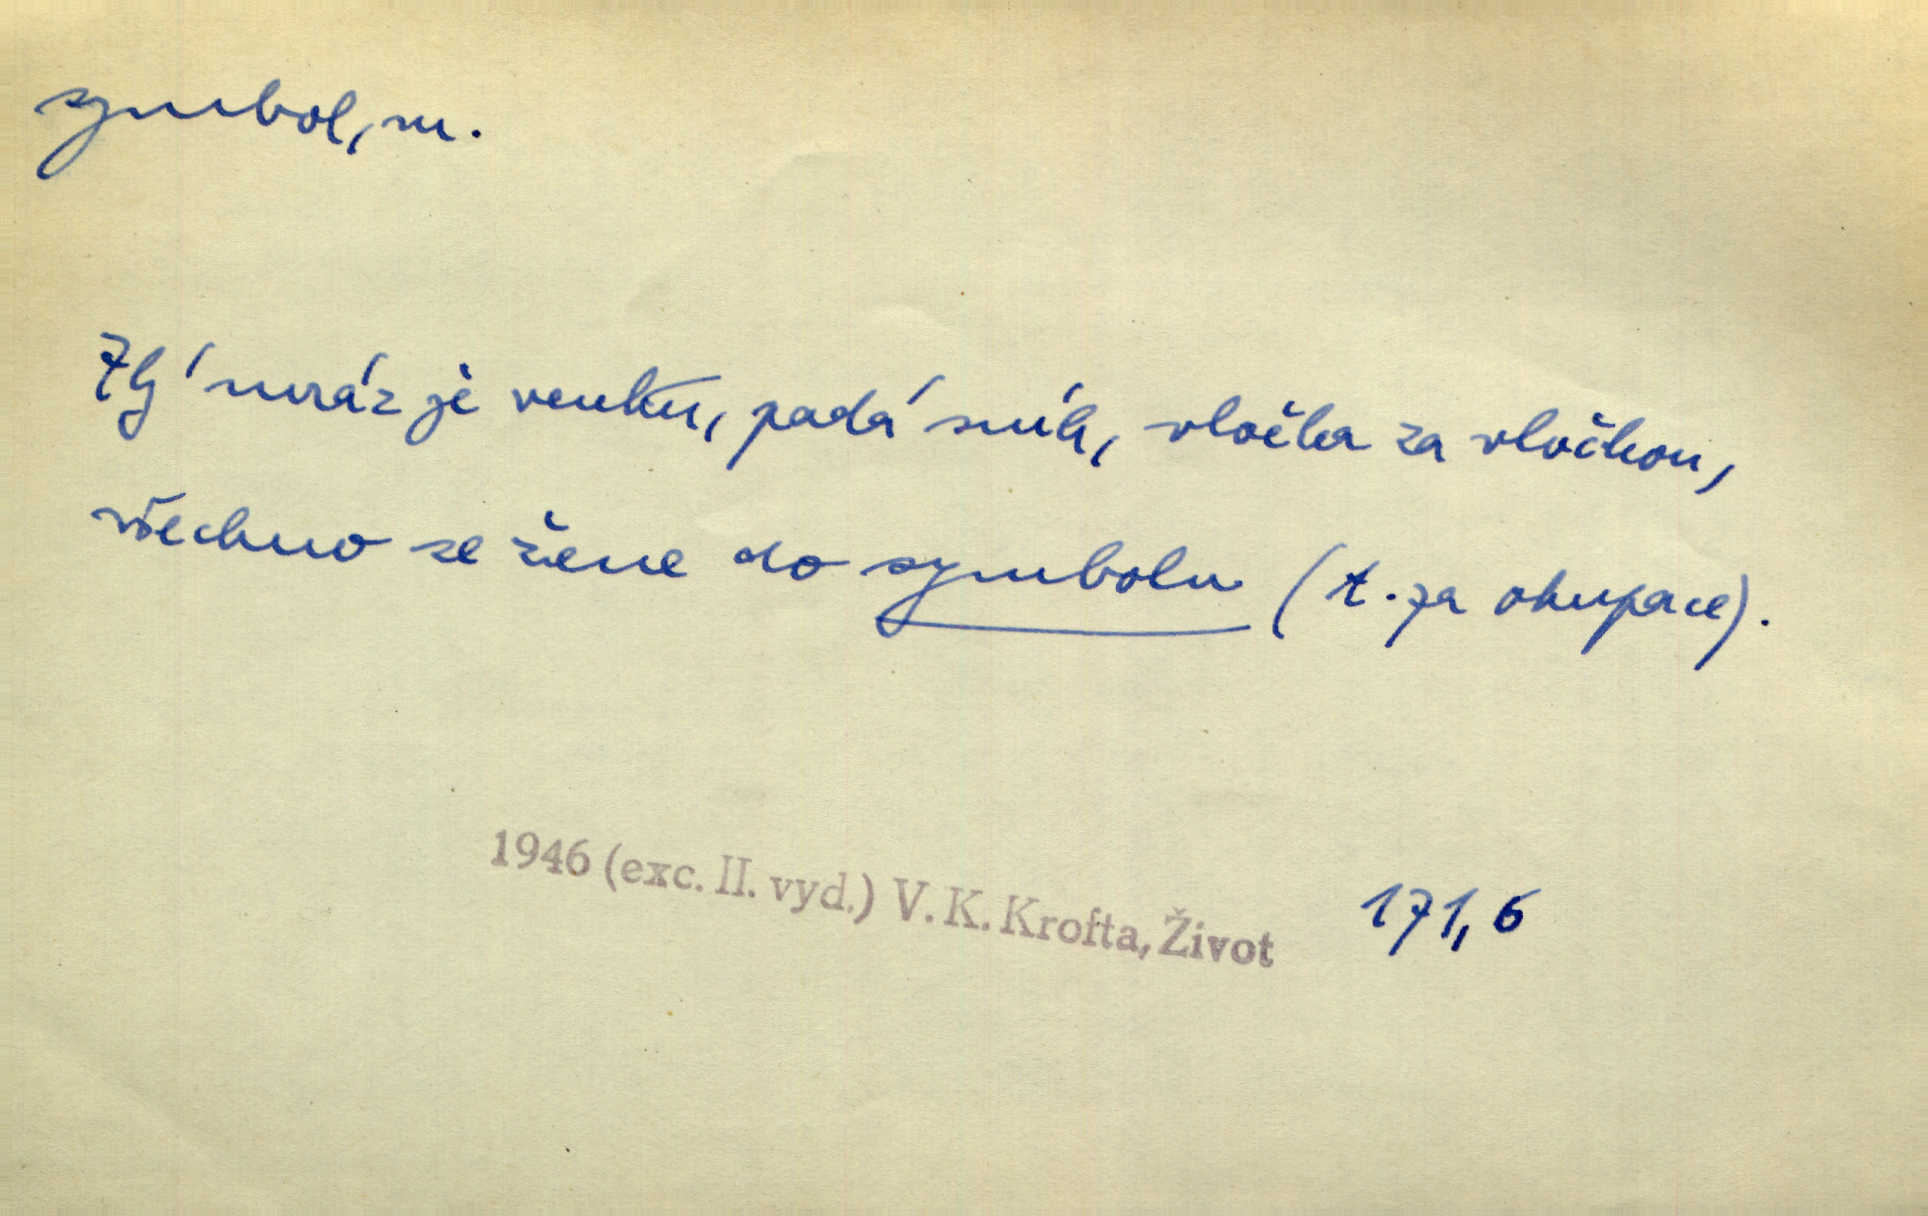 symbol, m.
Zlý mráz je venku, padá sníh, vločka za vločkou,
všechno se žene do symbolu (t. za okupace).
1946 (exc. II. vyd.) V. K. Krofta, Život 171, 6